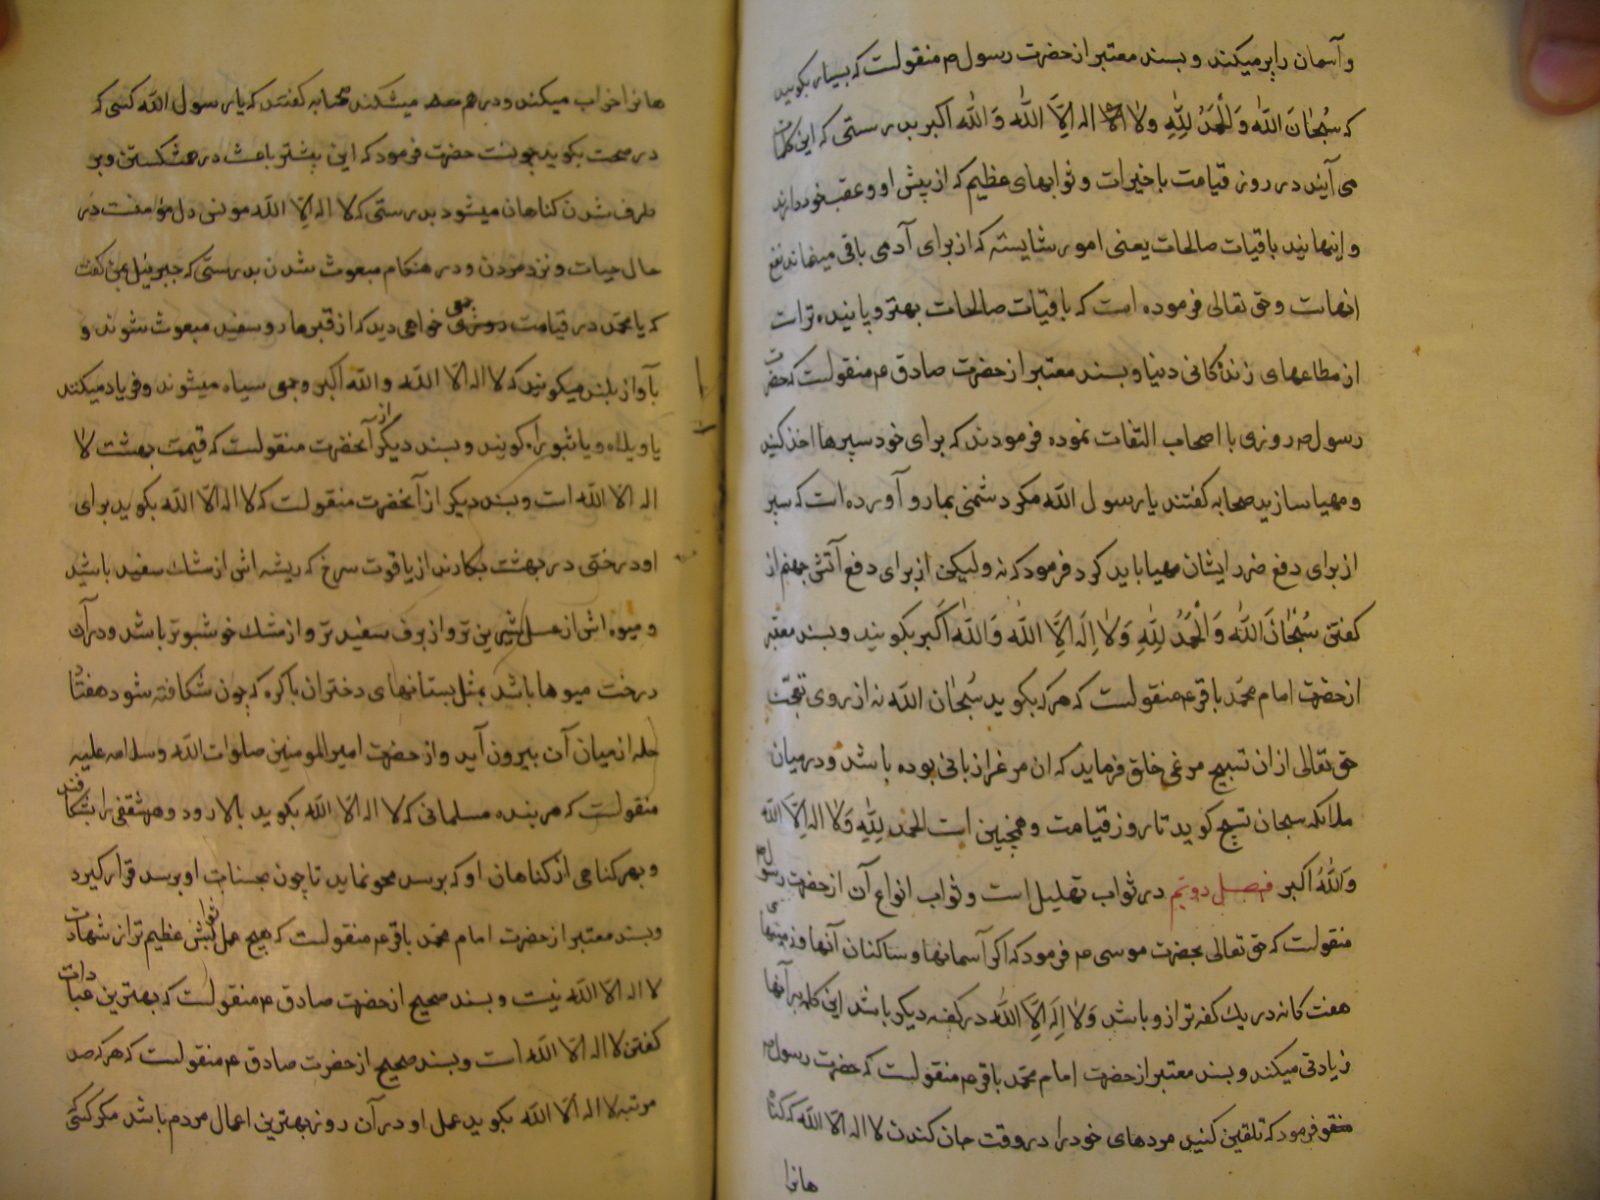 و آسمان را پر میکند و بسند معتبر از حضرت رسول ص منقولست که بسیار بکوئید
که سُبْحٰانَ اللّٰه وَ لْحَمْدُ لِلّٰهِ ولا اله اِلَّا اللّٰه وَ اللّٰه اکبر بدرستی که این کلمات
می آیند در روز قیامت با خیرات و ثوابهای عظیم که از پیش او و عقب خود دارند
و اینهایند باقیات صالحات یعنی امور شایسته که از برای آدمی باقی میماند نفع
انهاست و حق تعالی فرموده است که باقیات صالحات بهتر و پاینده تراست
از مطاعهای زندکانی دنیا و بسند معتبر از حضرت صادق ع منقولست که حضرت
رسول ص روزی با اصحاب التفات نموده فرمودند که برای خود سپرها اخذ کنید
و مهیا سازید صحابه کفتند یا رسول اللّه مکر دشمنی بما رو آورده است که سپر
از برای دفع ضرر ایشان مهیا باید کرد فرمود که نه ولیکن از برای دفع آتش جهنم از
کفتن سُبْحٰانَ اللّٰه وَ الْحَمْدُ لِلّٰهِ وَلا اِلَه اِلَّا اللّٰه وَ اللّٰه اکبر بکویند و بسند معتبر
از حضرت امام محمّد باقر ع منقولست که هر که بکوید سُبْحٰان اللّه نه از روی تعجّب
حق تعالی از ان تسبیح مرغی خلق فرماید که ان مرغ را زبانی بوده باشد و در میان
ملائکه سبحان تسبیح کوید تا روز قیامت و همچنین است الحمد لِلّٰهِ وَلا اله اِلَّا اللّٰه
وَ اللّٰهُ اکبر فصل دویّم در ثواب تهلیل است و ثواب انواع آن از حضرت رسول ص
منقولست که حق تعالی بحضرت موسی ع فرمود که اکر آسمانها و ساکنان آنها و زمینهای
هفت کانه در یک کفه ترازو باشد وَلا اِلَه اِلَّا اللّٰه در کفه دیکر باشد این کلمه بر آنها
زیادتی میکند و بسند معتبر از حضرت امام محمّد باقر ع منقولست که حضرت رسول ص
فرمود که تلقین کنید مردهای خود را در وقت جان کندن لا اله الّا اللّه که کنا
هانرا
هانرا خراب میکند و در هم میشکند صحابه کفتند که یا رسول اللّه کسی که
در صحت بکوید چونست حضرت فرمود که این بیشتر باعث در هم شکستن و بر
طرف شدن کناهان میشود بدرستی که لا اله اِلّا اللّه مونس دل مؤمنست در
حال حیات و نزد مردن و در هنکام مبعوث شدن بدرستی که جبرئیل بمن کفت
که یا محمّد در قیامت جمعی خواهی دید که از قبرها رو سفید مبعوث شوند و
بآواز بلند میکویند که لا اله الّا اللّه و اللّه اکبر و جمعی سیاه میشوند و فریاد میکنند
یا ویلاه و یا ثبوراه کویند و بسند دیگر از آنحضرت منقولست که قیمت بهشت لا
اله الّا اللّه است و بسند دیکر از آنحضرت منقولست که لا اله الّا اللّه بکوید برای
او درختی در بهشت بکارند از یاقوت سرخ که ریشه اش از مشک سفید باشد
و میوه اش از عسل شیرین تر و از برف سفید تر و از مشک خوشبو تر باشد و در آن
درخت میوها باشد بمثل پستانهای دختران باکره که چون شکافته شود هفتاد
حله از میان آن بیرون آید و از حضرت امیر المومنین صلوات اللّه و سلامه علیه
منقولست که هر بنده مسلمانی که لا اله الّا اللّه بکوید بالا رود و هر سقفی را بشکافد
و بهر کناهی از کناهان او که برسد محو نماید تا چون بحسنات او برسد قرار کیرد
و بسند معتبر از حضرت امام محمّد باقر ع منقولست که هیچ عمل ثوابش عظیم تر از شهادت
لا اله الا اللّه نیست و بسند صحیح از حضرت صادق ع منقولست که بهترین عبادات
کفتن لا اله الّا اللّه است و بسند صحیح از حضرت صادق ع منقولست که هر که صد
مرتبه لا اله الّا اللّه بکوید عمل او در آن روز بهترین اعمال مردم باشد مکر کسی